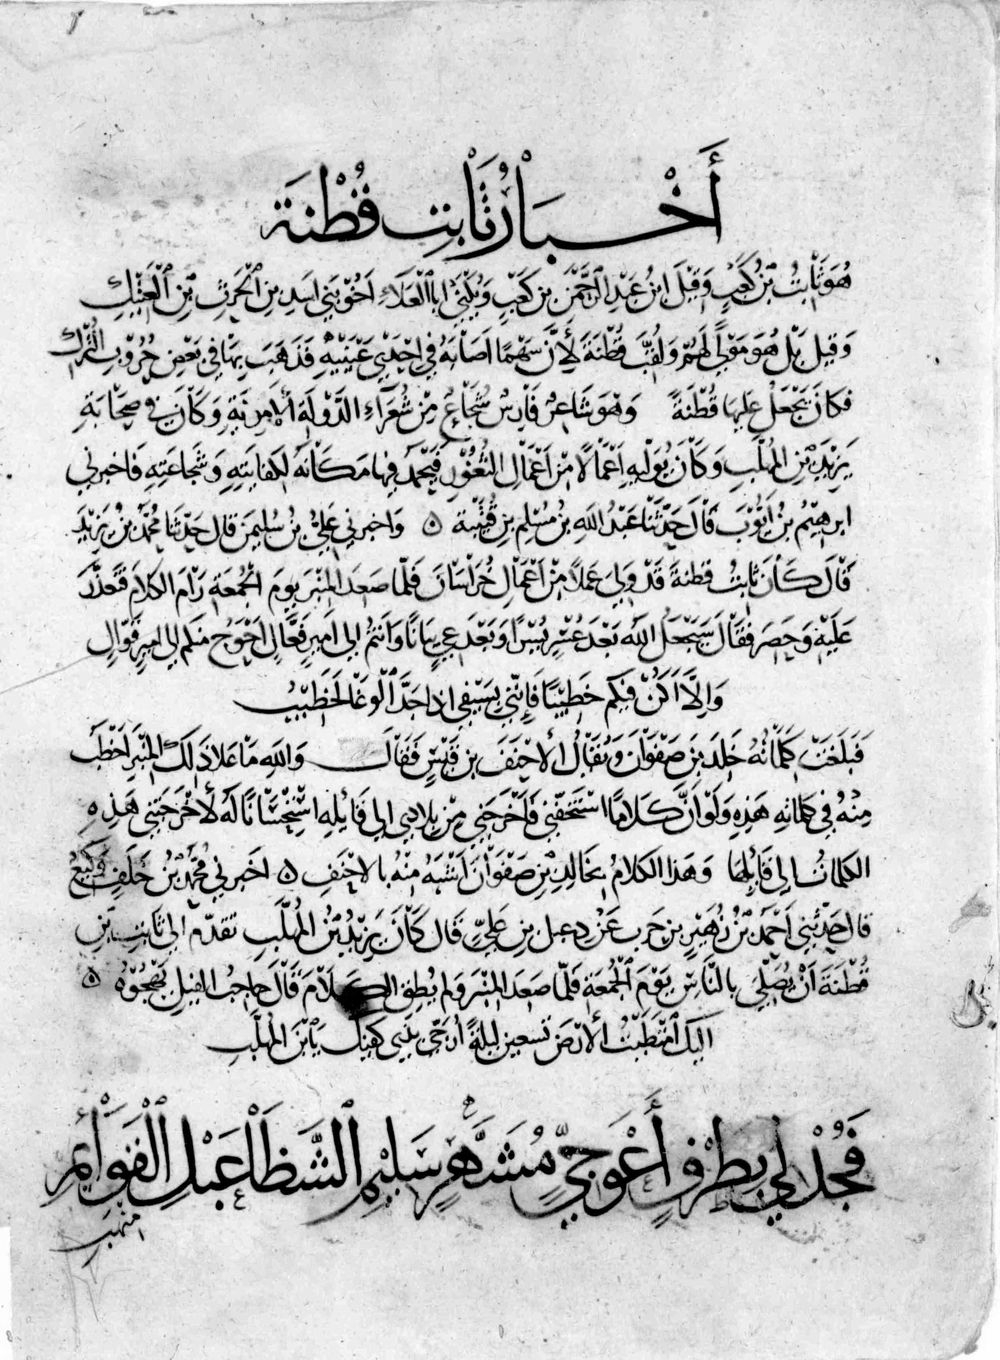 أَخْبَارُ ثَابِتِ قُطْنَةَ
هُوَ ثَابِتُ بْنُ كَعْبٍ وَقِيلَ ابْنُ عَبْدِ الرَّحْمٰنِ بْنِ كَعْبٍ وَيُكْنَى أَبَا الْعَلَاءِ أَخُو بَنِي أَسَدِ بْنِ الْحٰرِثِ بْنِ الْعَتِيكِ
وَقِيلَ بَلْ هُوَ مَوْلًى لَهُمْ وَلُقِّبَ قُطْنَةَ لِأَنَّ سَهْمًا أَصَابَهُ فِي إِحْدَى عَيْنَيْهِ فَذَهَبَ بِهَا فِي بَعْضِ حُرُوبِ التُّرْكِ
فَكَانَ يَجْعَلُ عَلَيْهَا قُطْنَةً وَهُوَ شَاعِرٌ فَارِسٌ شُجَاعٌ مِنْ شُعَرَاءِ الدَّوْلَةِ الْأُمَوِيَّةِ وَكَانَ فِي صَحَابَةِ
يَزِيدَ بْنِ الْمُهَلَّبِ وَكَانَ يُوَلِّيهِ أَعْمَالًا مِنْ أَعْمَالِ الثُّغُورِ فَيُحْمَدُ فِيهَا مَكَانُهُ لِكِفَايَتِهِ وَشَجَاعَتِهِ فَأَخْبَرَنِي
إِبْرٰهِيمُ بْنُ أَيُّوبَ قَالَ حَدَّثَنَا عَبْدُ اللهِ بْنُ مُسْلِمِ بْنِ قُتَيْبَةَ ۞ وَأَخْبَرَنِي عَلِيُّ بْنُ سُلَيْمٰنَ قَالَ حَدَّثَنَا مُحَمَّدُ بْنُ يَزِيدَ
قَالَ كَانَ ثَابِتُ قُطْنَةَ قَدْ وَلِيَ عَمَلًا مِنْ أَعْمَالِ خُرَاسَانَ فَلَمَّا صَعِدَ الْمِنْبَرَ يَوْمَ الْجُمُعَةِ رَامَ الْكَلَامَ فَتَعَذَّرَ
عَلَيْهِ وَحَصِرَ فَقَالَ سَيَجْعَلُ اللهُ بَعْدَ عُسْرٍ يُسْرًا وَبَعْدَ عِيٍّ بَيَانًا وَأَنْتُمْ إِلَى أَمِيرٍ فَعَّالٍ أَحْوَجُ مِنْكُمْ إِلَى أَمِيرٍ قَوَّالٍ
وَإِلَّا أَكُنْ فِيكُمْ خَطِيبًا فَإِنَّنِي بِسَيْفِي إِذَا جَدَّ الْوَغَا لَخَطِيبُ
فَبَلَغَتْ كَلِمَاتُهُ خٰلِدَ بْنَ صَفْوَانَ وَيُقَالُ الْأَحْنَفَ بْنَ قَيْسٍ فَقَالَ وَاللهِ مَا عَلَا ذَلِكَ الْمِنْبَرَ أَخْطَبُ
مِنْهُ فِي كَلِمَاتِهِ هَذِهِ وَلَوْ أَنَّ كَلَامًا اسْتَخَفَّنِي فَأَخْرَجَنِي مِنْ بِلَادِي إِلَى قَائِلِهِ اسْتِحْسَانًا لَهُ لَأَخْرَجَتْنِي هَذِهِ
الْكَلِمَاتُ إِلَى قَائِلِهَا وَهَذَا الْكَلَامُ بِخَالِدِ بْنِ صَفْوَانَ أَشْبَهُ مِنْهُ بِالْأَحْنَفِ ۞ أَخْبَرَنِي مُحَمَّدُ بْنُ خَلَفٍ وَكِيعٌ
قَالَ حَدَّثَنِي أَحْمَدُ بْنُ زُهَيْرِ بْنِ حَرْبٍ عَنْ دِعْبِلِ بْنِ عَلِيٍّ قَالَ كَانَ يَزِيدُ بْنُ الْمُهَلَّبِ تَقَدَّمَ إِلَى ثَابِتِ بْنِ
قُطْنَةَ أَنْ يُصَلِّيَ بِالنَّاسِ يَوْمَ الْجُمُعَةِ فَلَمَّا صَعِدَ الْمِنْبَرَ وَلَمْ يُطِقِ الْكَلَامَ قَالَ حَاجِبُ الْفِيلِ يَهْجُوهُ ۞
إِلَيْكَ امْتَطَيْتُ الْأَرْضَ تِسْعِينَ لَيْلَةً أُرَجِّي نَدَى كَفَّيْكَ يَا بْنَ الْمُهَلَّبِ
فَجُدْ لِي بِطِرْفٍ أَعْوَجِيٍّ مُشَهَّرٍ سَلِيمِ الشَّظَا عَبْلِ الْقَوَائِمِ